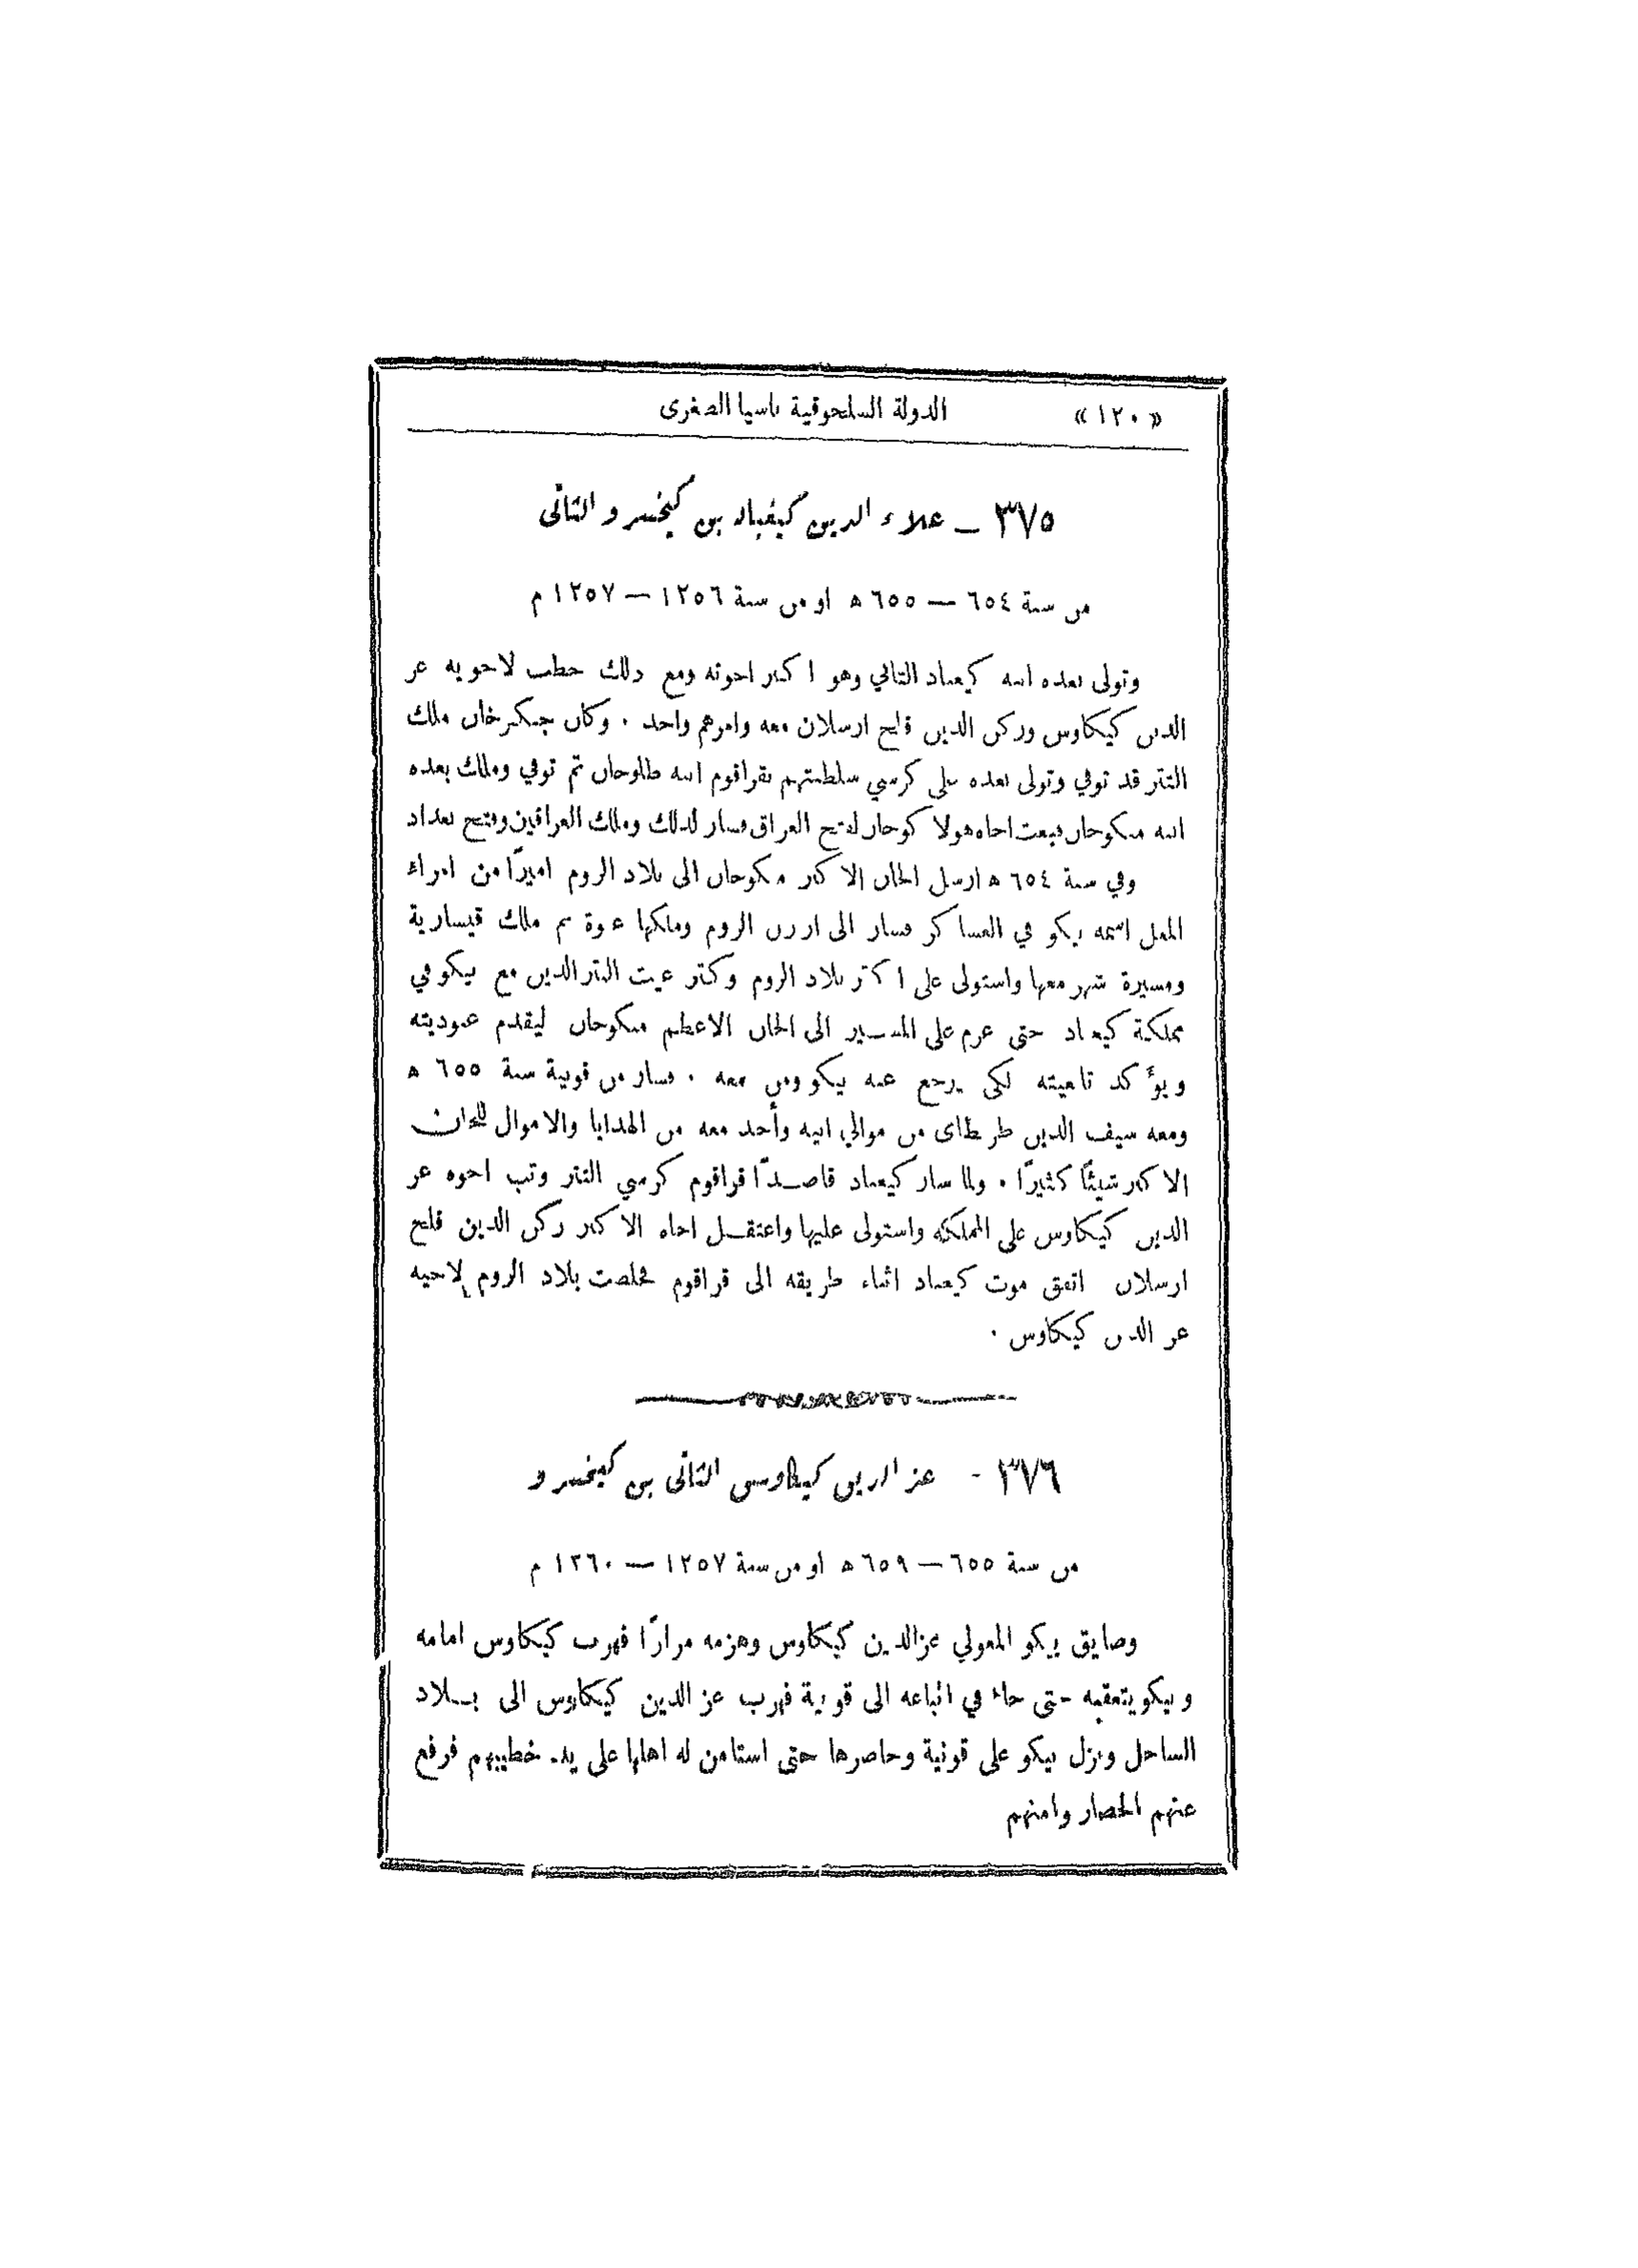 «١٢٠» الدولة السلجوقية باسيا الصغرى
٣٧٥ — علاء الدين كيقباد بن كيخسرو الثانى
من سنة ٦٥٤ — ٦٥٥ ھ او من سنة ١٢٥٦ — ١٢٥٧ م
وتولى بعده ابنه كيقباد الثاني وهو اكبر اخوته ومع ذلك خطب لاخويه عز
الدين كيكاوس وركن الدين قليج ارسلان معه وامرهم واحد . وكان جنكيزخان ملك
التتر قد توفي وتولى بعده على كرسي سلطنتهم بقراقوم ابنه طلوخان ثم توفي وملك بعده
ابنه منكوخان فبعث اخاه هولا كوخان لفتح العراق فسار لذلك وملك العراقين وفتح بغداد
وفي سنة ٦٥٤ ھ ارسل الخان الاكبر منكوخان الى بلاد الروم اميرًا من امراء
المغل اسمه بيكو في العساكر فسار الى ارزن الروم وملكها عنوة ثم ملك قيسارية
ومسيرة شهر معها واستولى على اكثر بلاد الروم وكثر عيث التتر الذين مع بيكو في
مملكة كيقباد حتى عزم على المسير الى الخان الاعظم منكوخان ليقدم عبوديته
ويؤكد تابعيته لكي يرجع عنه بيكو ومن معه . فسار من قونية سنة ٦٥٥ ھ
ومعه سيف الدين طرنطاى من موالي ابيه وأخذ معه من الهدايا والاموال للخان
الاكبر شيئًا كثيرًا . ولما سار كيقباد قاصدًا قراقوم كرسي التتر وثب اخوه عز
الدين كيكاوس على المملكة واستولى عليها واعتقل اخاه الاكبر ركن الدين قليج
ارسلان اتفق موت كيقباد اثناء طريقه الى قراقوم فخلصت بلاد الروم لاخيه
عز الدين كيكاوس .
٣٧٦ - عز الدين كيكاوس الثانى بن كيخسرو
من سنة ٦٥٥ — ٦٥٩ ھ او من سنة ١٢٥٧ — ١٢٦٠ م
وضايق بيكو المغولي عز الدين كيكاوس وهزمه مرارًا فهرب كيكاوس امامه
وبيكو يتعقبه حتى جاء في اتباعه الى قونية فهرب عز الدين كيكاوس الى بلاد
الساحل ونزل بيكو على قونية وحاصرها حتى استامن له اهلها على يد خطيبهم فرفع
عنهم الحصار وامنهم